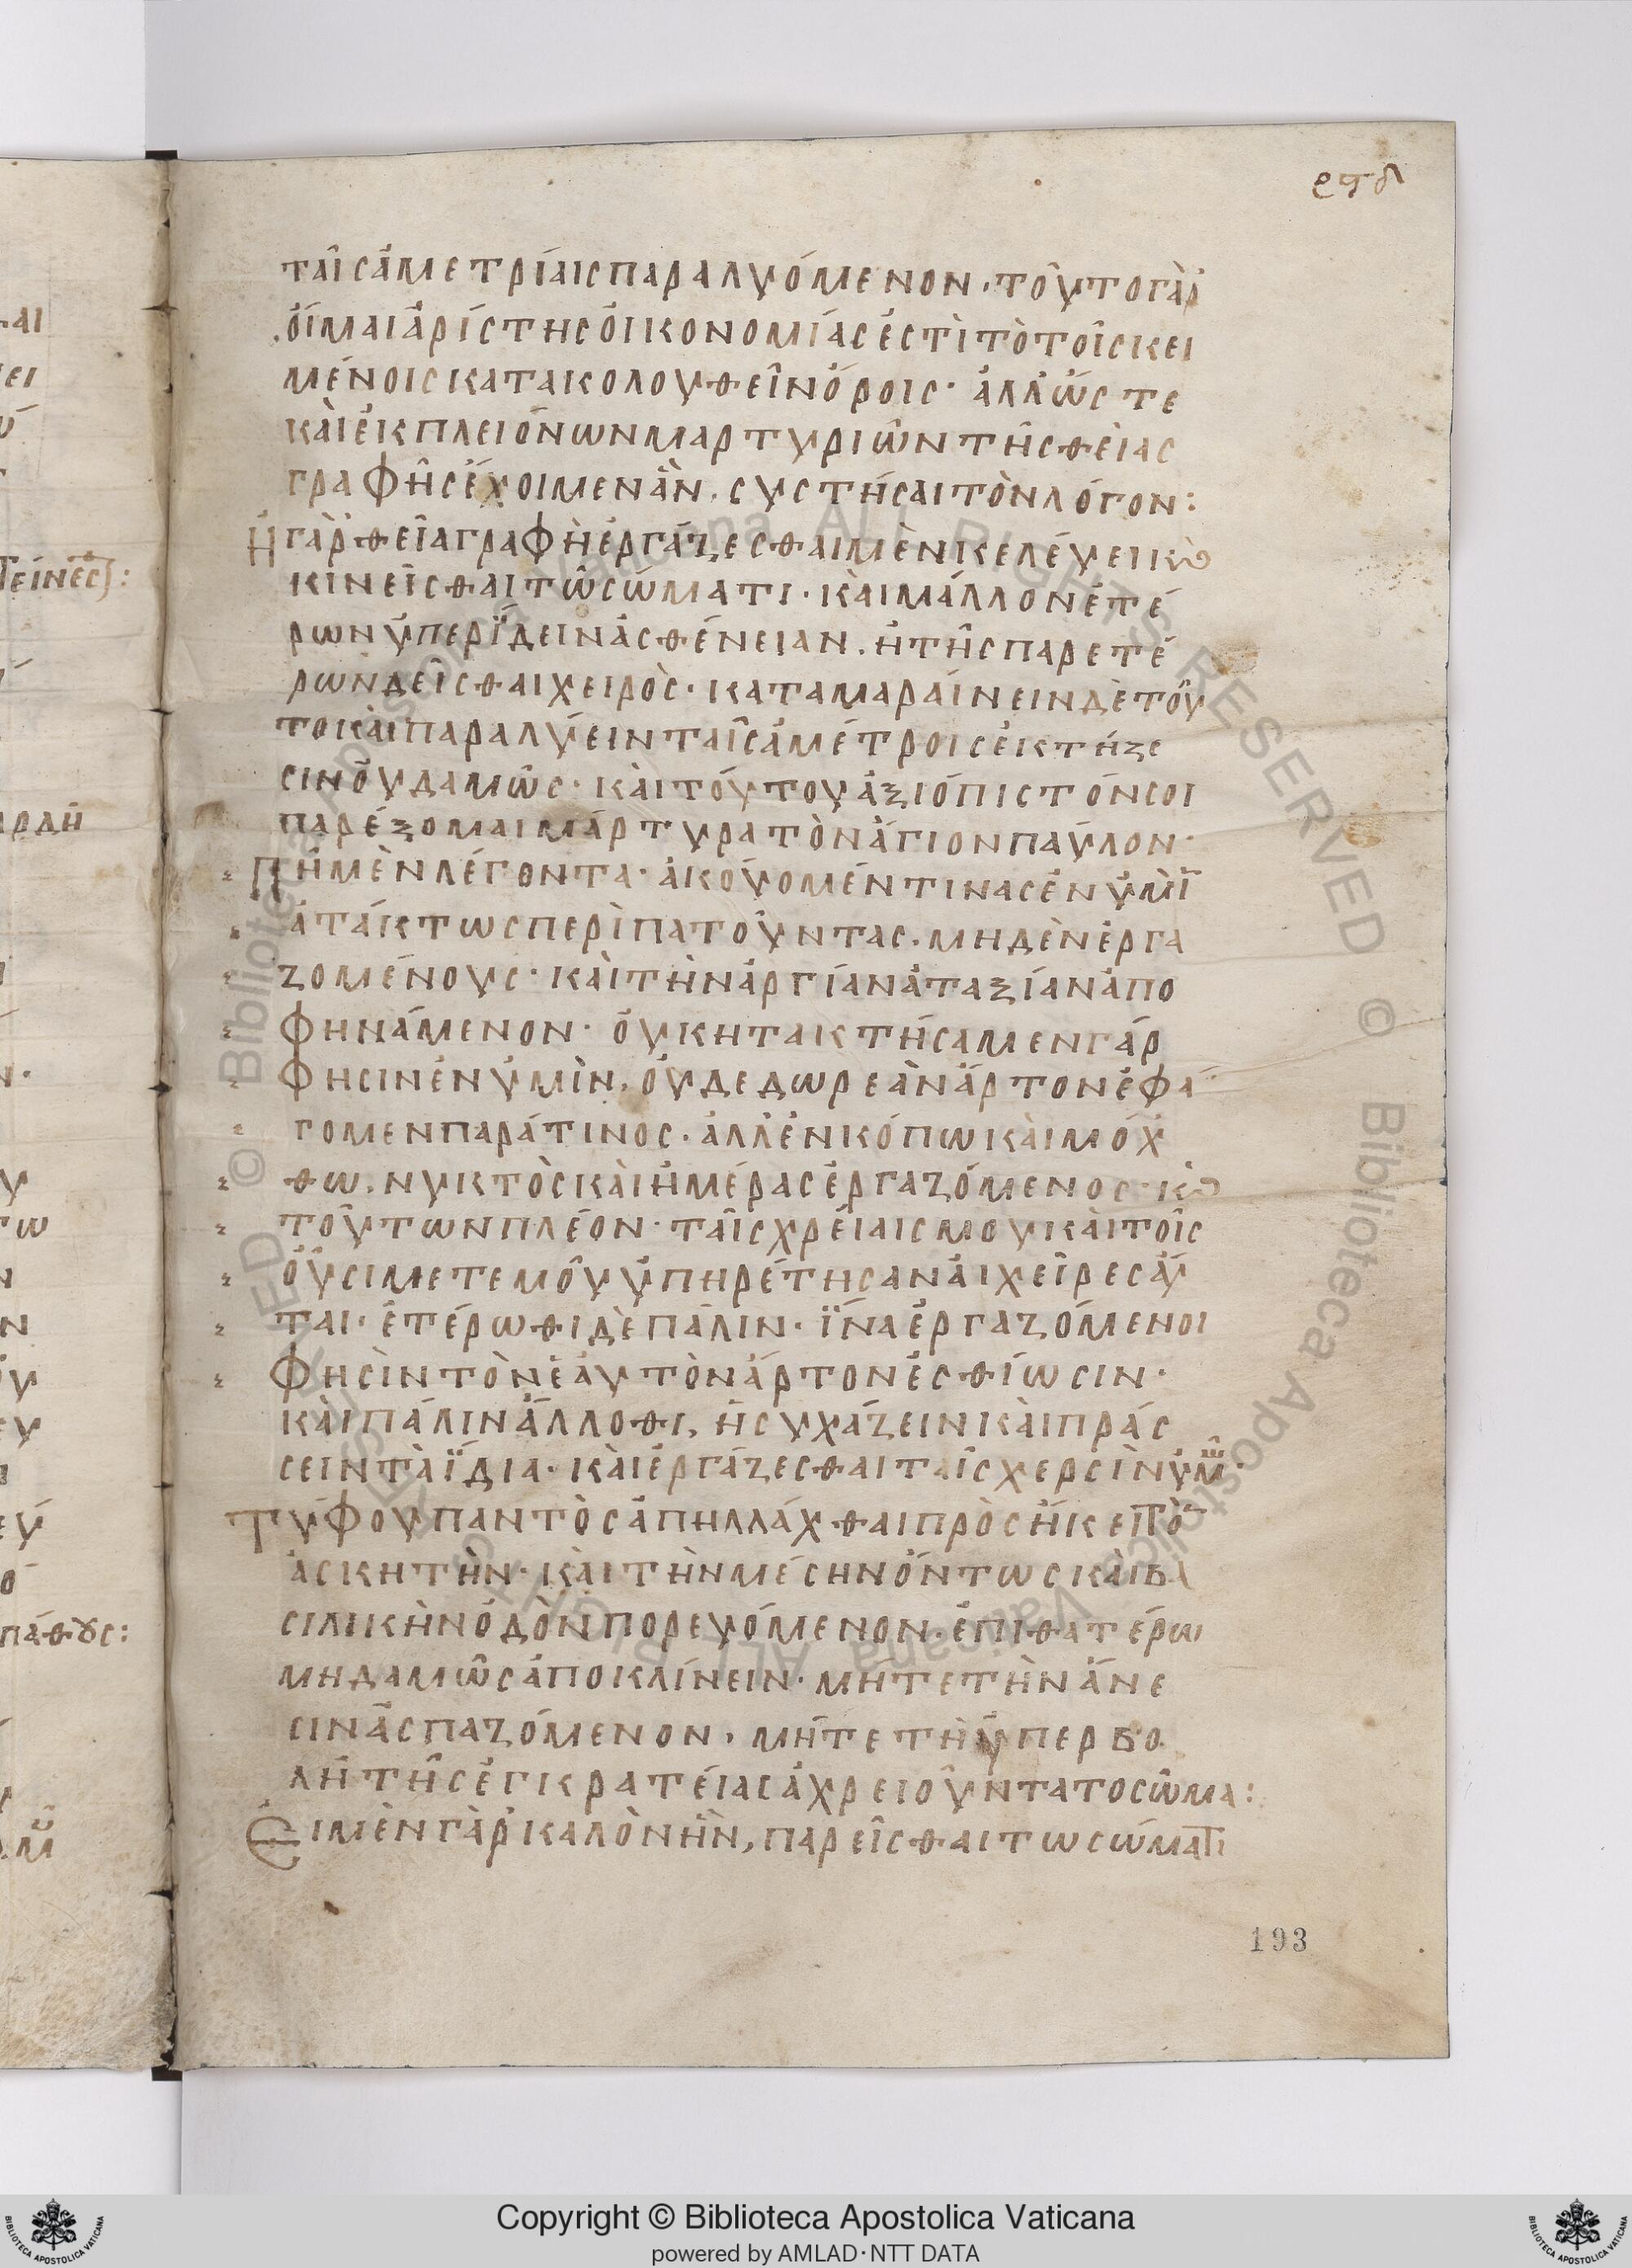 ϟτδ
ταῖς ἀμετρίαις παραλυόμενον, τοῦτο γὰρ
οἶμαι ἀρίστης οἰκονομίας ἐστὶ τὸ τοῖς κει
μένοις κατακολουθεῖν ὅροις· ἄλλως τε
καὶ ἐκ πλειόνων μαρτυριῶν τῆς θείας
γραφῆς ἔχοιμεν ἂν, συστῆσαι τὸν λόγον:
Ἡ γὰρ θεία γραφὴ ἐργάζεσθαι μὲν κελεύει κ(αὶ)
κινεῖσθαι τῶ σώματι· καὶ μᾶλλον ἑτέ
ρων ὑπερίδειν ἀσθένειαν. ἢ τῆς παρ ετέ
ρων δεῖσθαι χειρὸς· καταμαραίνειν δὲ τοῦ
το καὶ παραλύειν ταῖς ἀμέτροις ἐκτήξε
σιν οὐδαμῶς· καὶ τούτου ἀξιόπιστόν σοι
παρέξομαι μάρτυρα τὸν ἅγιον παῦλον·
Πῆ μὲν λέγοντα· ἀκούομέν τινας ἐν ὑμῖ
ἀτάκτως περὶπατοῦντας. μηδὲν ἐργα
ζομένους· καὶ τὴν ἀργίαν ἀταξίαν ἀπο
φηνάμενον· οὐκ ητακτήσαμεν γάρ
φησιν ἐν ὑμῖν, οὐδε δωρεὰν ἄρτον ἐφά
γομεν παρά τινος. ἀλλ' ἐν κόπω καὶ μόχ
θω, νυκτὸς καὶ ἡμέρας ἐργαζόμενος· κ(αὶ)
τοῦτων πλέον· ταῖς χρείαις μου καὶ τοῖς
οὖσι μετεμοῦ ὑπηρέτησαν ἁι χεῖρες ἅυ
ται· ἑτέρωθι δὲ πάλιν· ἵνα ἐργαζόμενοι
φησὶν τὸν ἑαυτὸν ἄρτον ἐσθίωσιν·
καὶ πάλιν ἄλλοθι, ἡσυχάζειν καὶ πράσ
σειν τὰ ἴδια· καὶ ἐργάζεσθαι ταῖς χερσὶν ὑμῶ·
Τύφου παντὸς ἀπηλλάχθαι προσήκει τὸ
ἀσκητὴν· καὶ τὴν μέσην ὄντως καὶ βα
σιλικὴν ὁδὸν πορευόμενον. ἐπι θατέρω
μηδαμῶς ἀποκλίνειν· μήτε τὴν ἄνε
σιν ἀσπαζόμενον, μήτε τῆ ὑπερβο
λῆ τῆς ἐγκρατείας ἀχρειοῦντα το σῶμα:
Ἐι μὲν γὰρ καλὸν ἦν, παρεῖσθαι τω σώματι
193
Copyright © Biblioteca Apostolica Vaticana
powered by AMLAD·NTT DATA